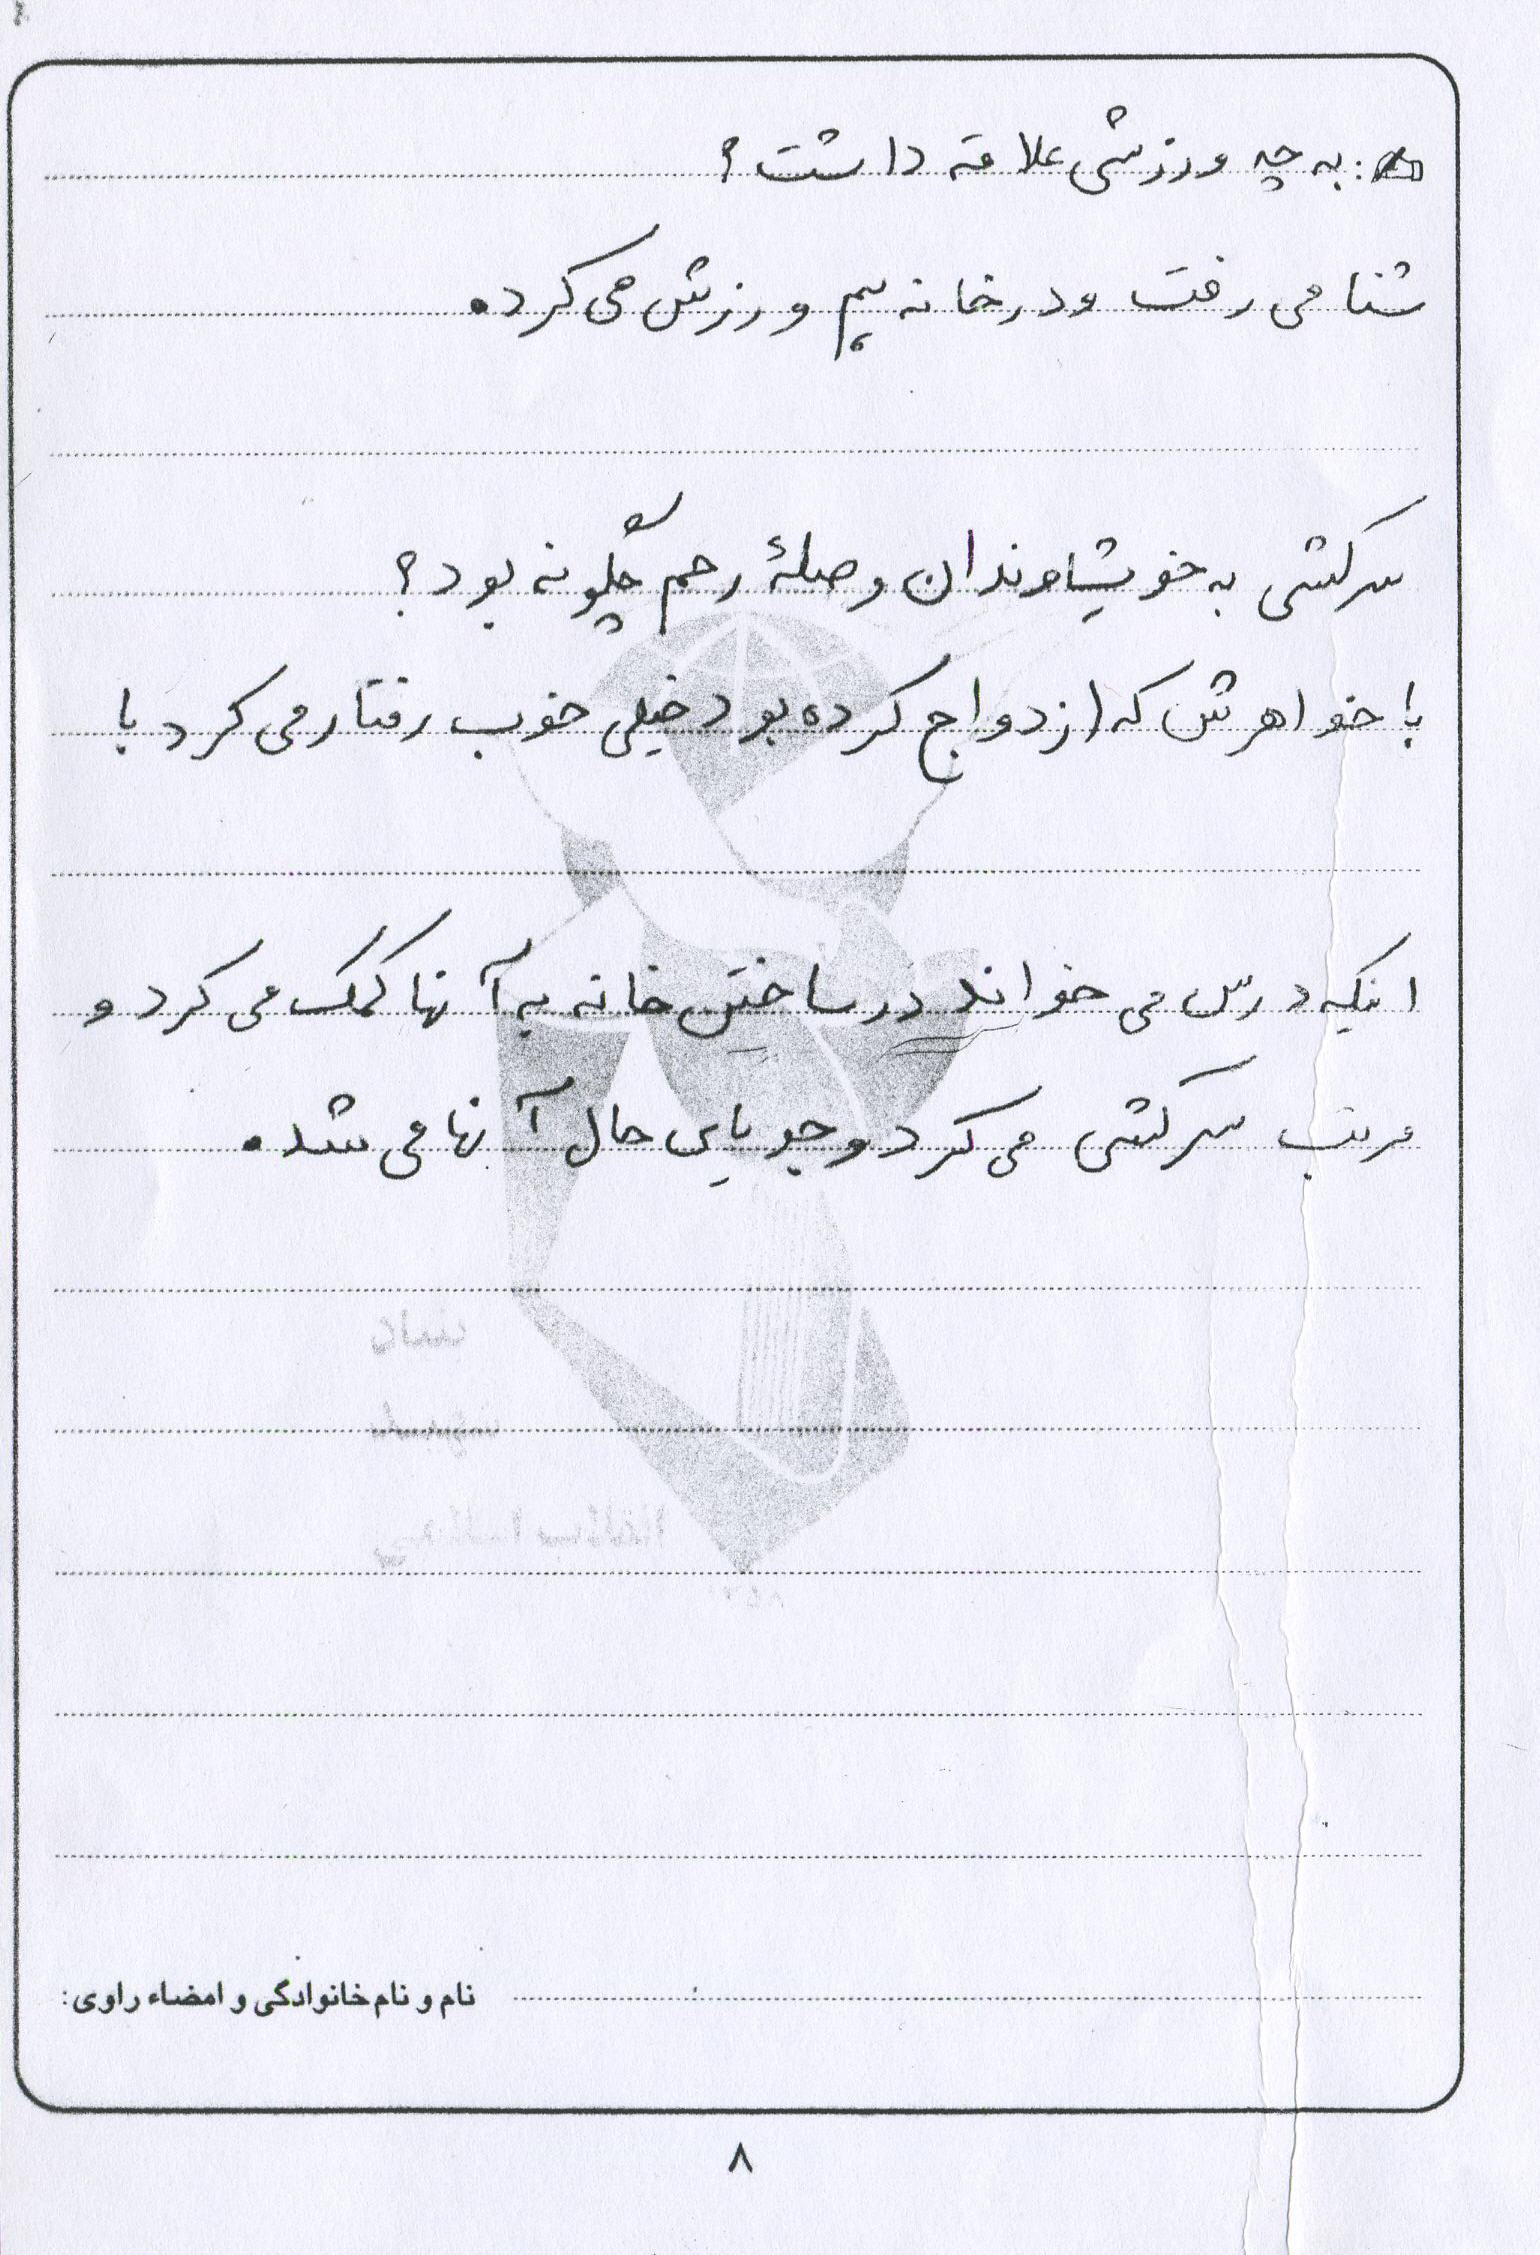 : به چه ورزشی علاقه داشت؟
شنا می رفت و در خانه هم ورزش می کرد.
سرکشی به خویشاوندان و صلهٔ رحم چگونه بود؟
با خواهرش که ازدواج کرده بود خیلی خوب رفتار می کرد با
اینکه درس می خواند در ساختن خانه به آنها کمک می کرد و
مرتب سرکشی می کرد و جویای حال آنها می شد.
نام و نام خانوادگی و امضاء راوی:
۸